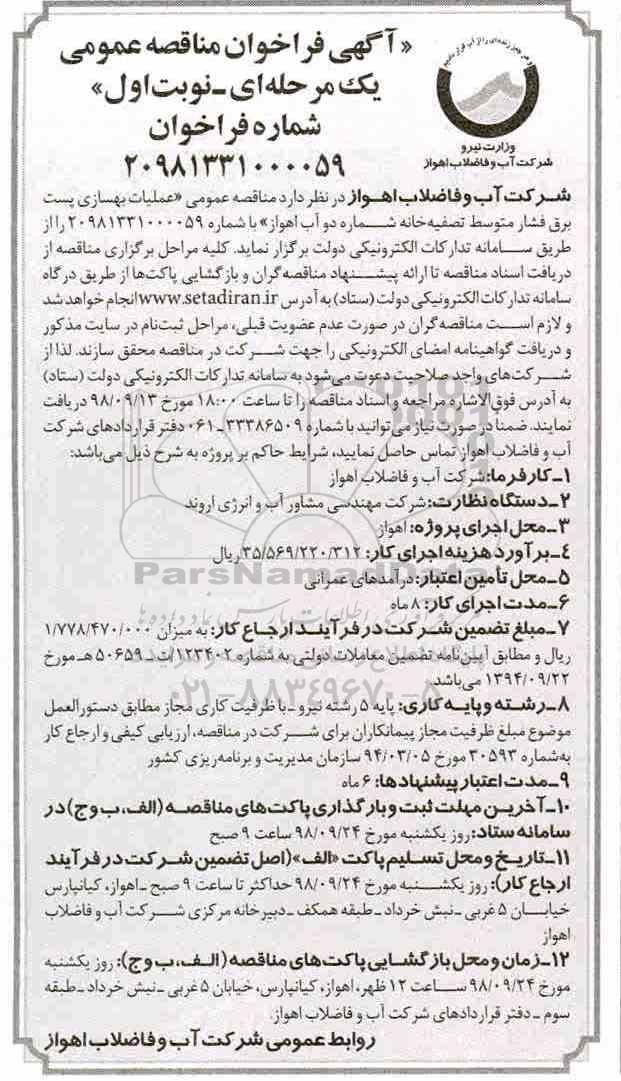 « آگهی فراخوان مناقصه عمومی
یک مرحله‌ای ـ نوبت اول»
شماره فراخوان
۲۰۹۸۱۳۳۱۰۰۰۰۵۹
وزارت نیرو
شرکت آب و فاضلاب اهواز
شرکت آب و فاضلاب اهواز در نظر دارد مناقصه عمومی «عملیات بهسازی پست
برق فشار متوسط تصفیه‌خانه شماره دو آب اهواز» با شماره ۲۰۹۸۱۳۳۱۰۰۰۰۵۹ را از
طریق سامانه تدارکات الکترونیکی دولت برگزار نماید. کلیه مراحل برگزاری مناقصه از
دریافت اسناد مناقصه تا ارائه پیشنهاد مناقصه‌گران و بازگشایی پاکت‌ها از طریق درگاه
سامانه تدارکات الکترونیکی دولت (ستاد) به آدرس www.setadiran.ir انجام خواهد شد
و لازم است مناقصه‌گران در صورت عدم عضویت قبلی، مراحل ثبت‌نام در سایت مذکور
و دریافت گواهینامه امضای الکترونیکی را جهت شرکت در مناقصه محقق سازند. لذا از
شرکت‌های واجد صلاحیت دعوت می‌شود به سامانه تدارکات الکترونیکی دولت (ستاد)
به آدرس فوق‌الاشاره مراجعه و اسناد مناقصه را تا ساعت ۱۸:۰۰ مورخ ۹۸/۰۹/۱۳ دریافت
نمایند. ضمناً در صورت نیاز می‌توانید با شماره ۳۳۳۸۶۵۰۹ ـ ۰۶۱ دفتر قراردادهای شرکت
آب و فاضلاب اهواز تماس حاصل نمایید، شرایط حاکم بر پروژه به شرح ذیل می‌باشد:
۱ـ کارفرما: شرکت آب و فاضلاب اهواز
۲ـ دستگاه نظارت: شرکت مهندسی مشاور آب و انرژی اروند
۳ـ محل اجرای پروژه: اهواز
۴ـ برآورد هزینه اجرای کار: ۳۵/۵۶۹/۲۲۰/۳۱۲ ریال
۵ـ محل تأمین اعتبار: درآمدهای عمرانی
۶ـ مدت اجرای کار: ۸ ماه
۷ـ مبلغ تضمین شرکت در فرآیند ارجاع کار: به میزان ۱/۷۷۸/۴۷۰/۰۰۰
ریال و مطابق آیین‌نامه تضمین معاملات دولتی به شماره ۱۲۳۴۰۲/ت ـ ۵۰۶۵۹ هـ مورخ
۱۳۹۴/۰۹/۲۲ می‌باشد.
۸ـ رشته و پایه کاری: پایه ۵ رشته نیرو ـ با ظرفیت کاری مجاز مطابق دستورالعمل
موضوع مبلغ ظرفیت مجاز پیمانکاران برای شرکت در مناقصه، ارزیابی کیفی و ارجاع کار
به‌شماره ۳۰۵۹۳ مورخ ۹۴/۰۳/۰۵ سازمان مدیریت و برنامه‌ریزی کشور
۹ـ مدت اعتبار پیشنهادها: ۶ ماه
۱۰ـ آخرین مهلت ثبت و بارگذاری پاکت‌های مناقصه (الف، ب و ج) در
سامانه ستاد: روز یکشنبه مورخ ۹۸/۰۹/۲۴ ساعت ۹ صبح
۱۱ـ تاریخ و محل تسلیم پاکت «الف» (اصل تضمین شرکت در فرآیند
ارجاع کار): روز یکشنبه مورخ ۹۸/۰۹/۲۴ حداکثر تا ساعت ۹ صبح ـ اهواز، کیانپارس
خیابان ۵ غربی ـ نبش خرداد ـ طبقه همکف ـ دبیرخانه مرکزی شرکت آب و فاضلاب
اهواز
۱۲ـ زمان و محل بازگشایی پاکت‌های مناقصه (الف، ب و ج): روز یکشنبه
مورخ ۹۸/۰۹/۲۴ ساعت ۱۲ ظهر، اهواز، کیانپارس، خیابان ۵ غربی ـ نبش خرداد ـ طبقه
سوم ـ دفتر قراردادهای شرکت آب و فاضلاب اهواز.
روابط عمومی شرکت آب و فاضلاب اهواز
ParsNamadData
۰۲۱-۸۸۳۴۹۶۷۰-۵